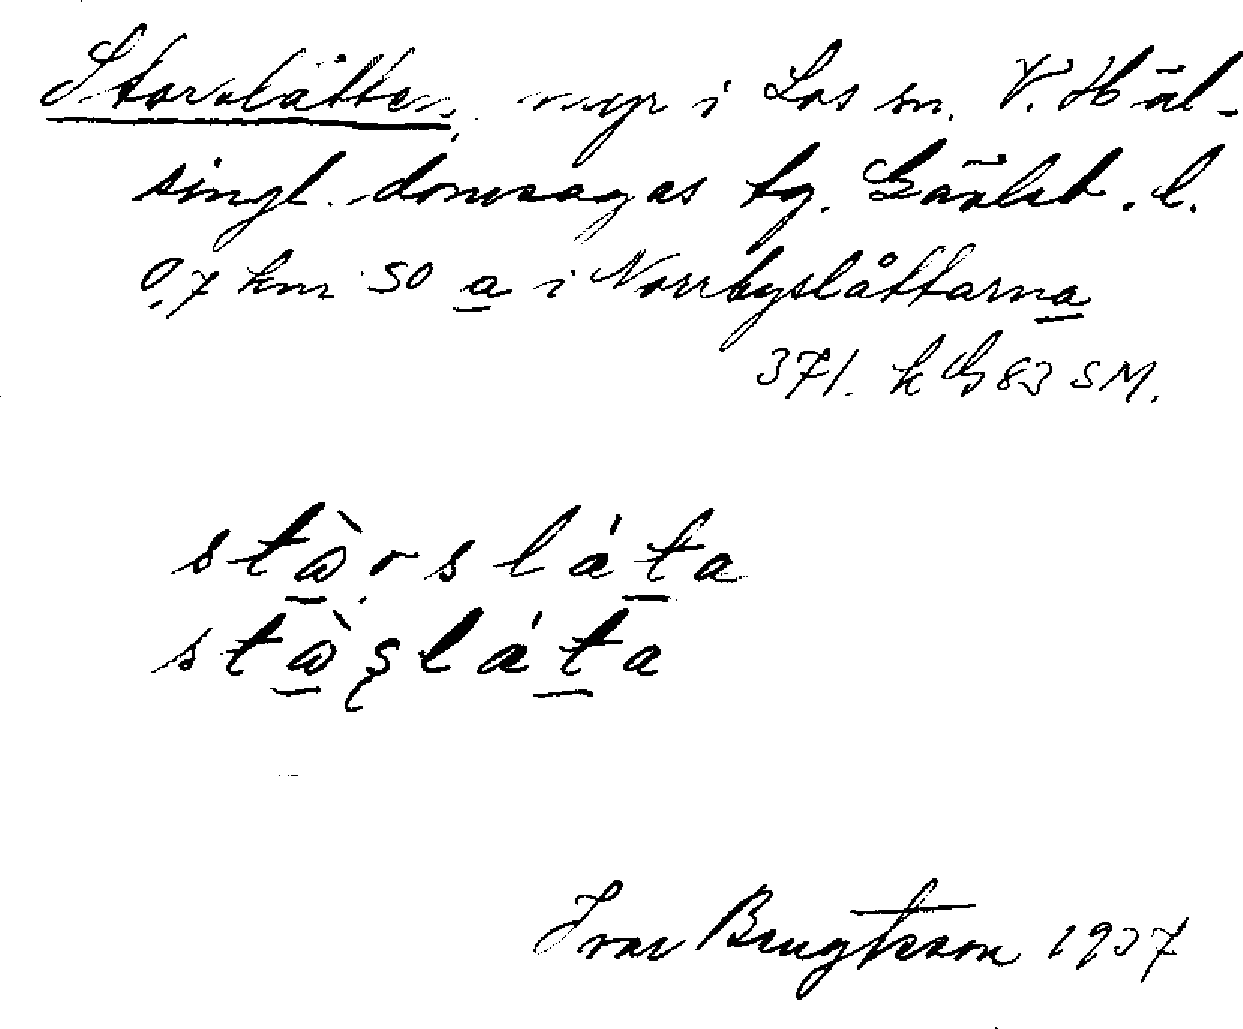 Storslåtten, myr i Los sn. V. Häl-
singl. domsagas tg. Gävleb. l.
0,7 km SO a i Norrbyslåttarna
371. k G 83 SM.
stɷ̀rsláta
stɷ̀ʂláta
Ivar Bengtsson 1937